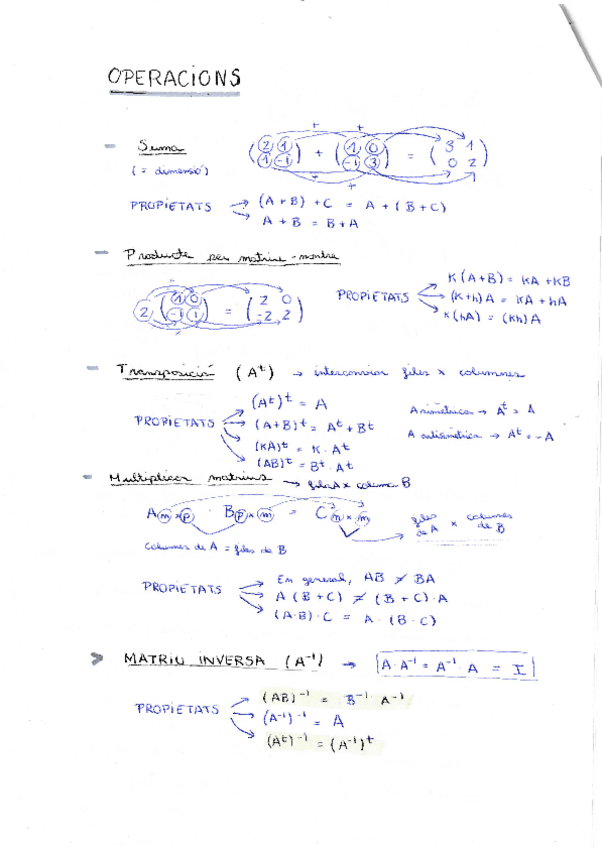 OPERACIONS
- Suma
(= dimensió)
( 2 1 ) + ( 1 0 ) = ( 3 1 )
( 1 -1 ) ( -1 3 ) ( 0 2 )
PROPIETATS → (A+B) + C = A + (B+C)
→ A + B = B + A
- Producte per matriu - nombre
2 ( 1 0 ) = ( 2 0 )
( -1 1 ) ( -2 2 )
PROPIETATS → K(A+B) = KA + KB
→ (K+h)A = KA + hA
→ K(hA) = (Kh)A
- Transposició (Aᵗ) → intercanviar files x columnes
PROPIETATS → (Aᵗ)ᵗ = A
→ (A+B)ᵗ = Aᵗ + Bᵗ
→ (KA)ᵗ = K · Aᵗ
→ (AB)ᵗ = Bᵗ · Aᵗ
A simètrica → Aᵗ = A
A antisimètrica → Aᵗ = -A
- Multiplicar matrius → fila A x columna B
A m x p · B p x m = C m x m → files de A x columnes de B
Columnes de A = files de B
PROPIETATS → En general, AB ≠ BA
→ A (B+C) ≠ (B+C) · A
→ (A·B) · C = A · (B·C)
> MATRIU INVERSA (A⁻¹) → A·A⁻¹ = A⁻¹·A = I
PROPIETATS → (AB)⁻¹ = B⁻¹ · A⁻¹
→ (A⁻¹)⁻¹ = A
→ (Aᵗ)⁻¹ = (A⁻¹)ᵗ